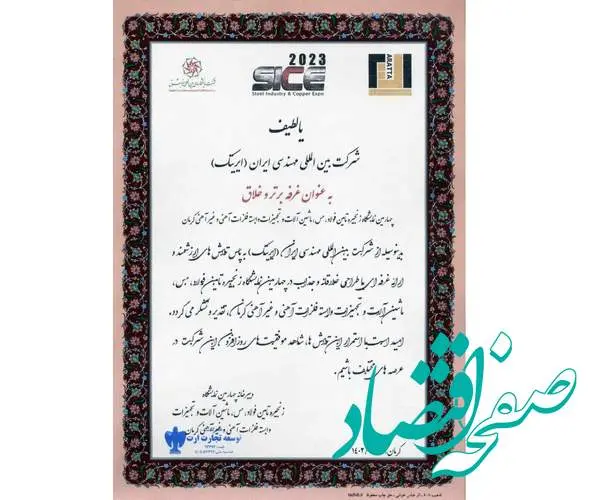 2023
SICE
Steel Industry & Copper Expo
ARATTA
یا لطیف
شرکت بین المللی مهندسی ایران (ایریتک)
به عنوان غرفه برتر و خلاق
چهارمین نمایشگاه زنجیره تامین فولاد، مس، ماشین آلات و تجهیزات وابسته فلزات آهنی و غیر آهنی کرمان
بدینوسیله از شرکت بین المللی مهندسی ایران (ایریتک) به پاس تلاش های ارزشمند و
ارائه غرفه ای با طراحی خلاقانه و جذاب در چهارمین نمایشگاه زنجیره تامین فولاد، مس،
ماشین آلات و تجهیزات وابسته فلزات آهنی و غیر آهنی کرمان، تقدیر و تشکر می گردد.
امید است با استمرار این تلاش ها، شاهد موفقیت های روز افزون این شرکت در
عرصه های مختلف باشیم.
دبیرخانه چهارمین نمایشگاه
زنجیره تامین فولاد، مس، ماشین آلات و تجهیزات
وابسته فلزات آهنی و غیر آهنی کرمان
توسعه تجارت ارت
کرمان ۱۴۰۲
صفحه اقتصاد